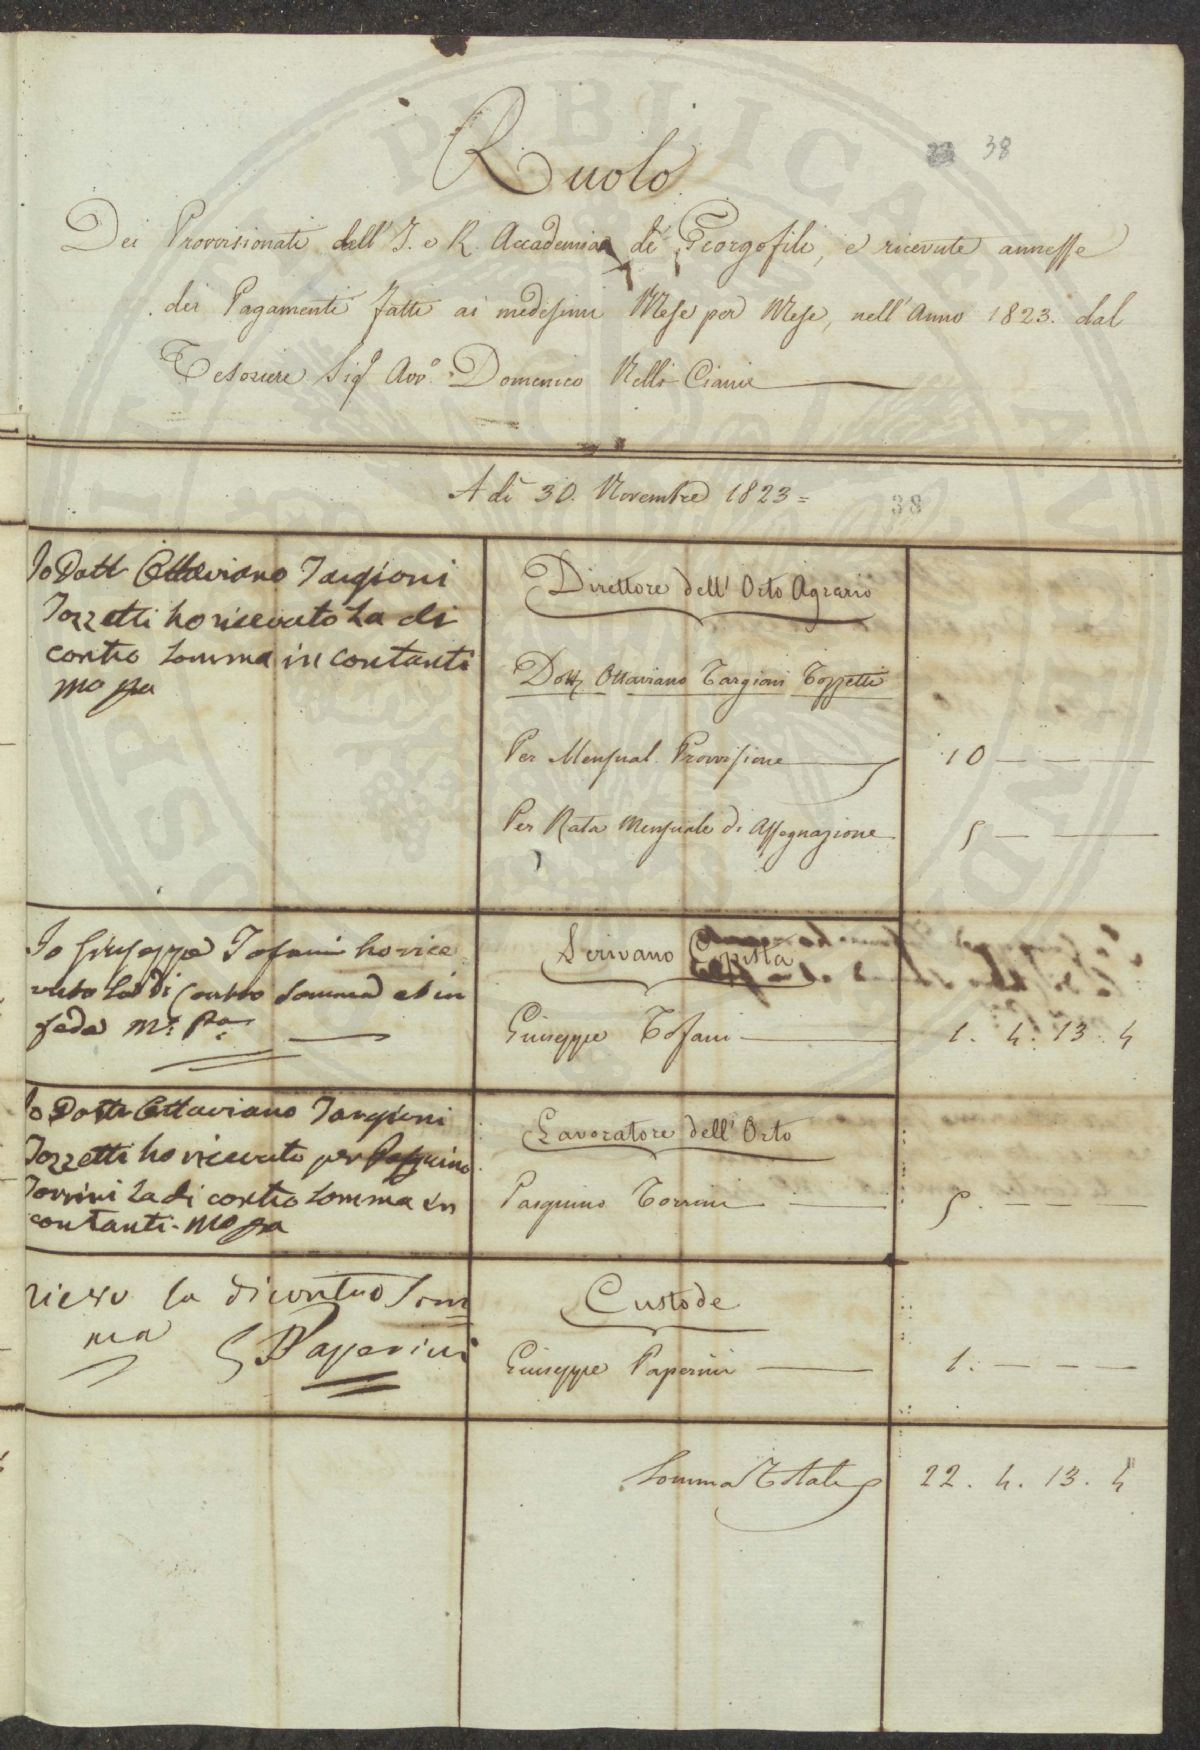 38
Ruolo
Dei Provvisionati dell' I. e R. Accademia de' Georgofili, e ricevute annesse
dei Pagamenti fatti ai medesimi Mese per Mese, nell' Anno 1823. dal
Tesoriere Sig.r Avv.o Domenico Nelli Ciani
A dì 30. Novembre 1823 =
38
Io Dott Ottaviano Targioni
Tozzetti ho ricevuto La di
contro Somma in contanti
mo ppa
Direttore dell' Orto Agrario
Dott Ottaviano Targioni Tozzetti
Per Mensual Provvisione 10 — — —
Per Rata Mensuale di Assegnazione 5 — —
Io Giuseppe Tofani ho rice
vuto La di Contro Somma et in
fede M.o Pa
Scrivano Copista
Giuseppe Tofani 1. 4. 13. 4
Io Dott Ottaviano Targioni
Tozzetti ho ricevuto per Pasquino
Torrini La di contro Somma in
contanti. mo ppa
Lavoratore dell' Orto
Pasquino Torrini 5. — — —
ricevo la di contro Som
ma G Paperini
Custode
Giuseppe Paperini 1. — — —
Somma Totale 22. 4. 13. 4